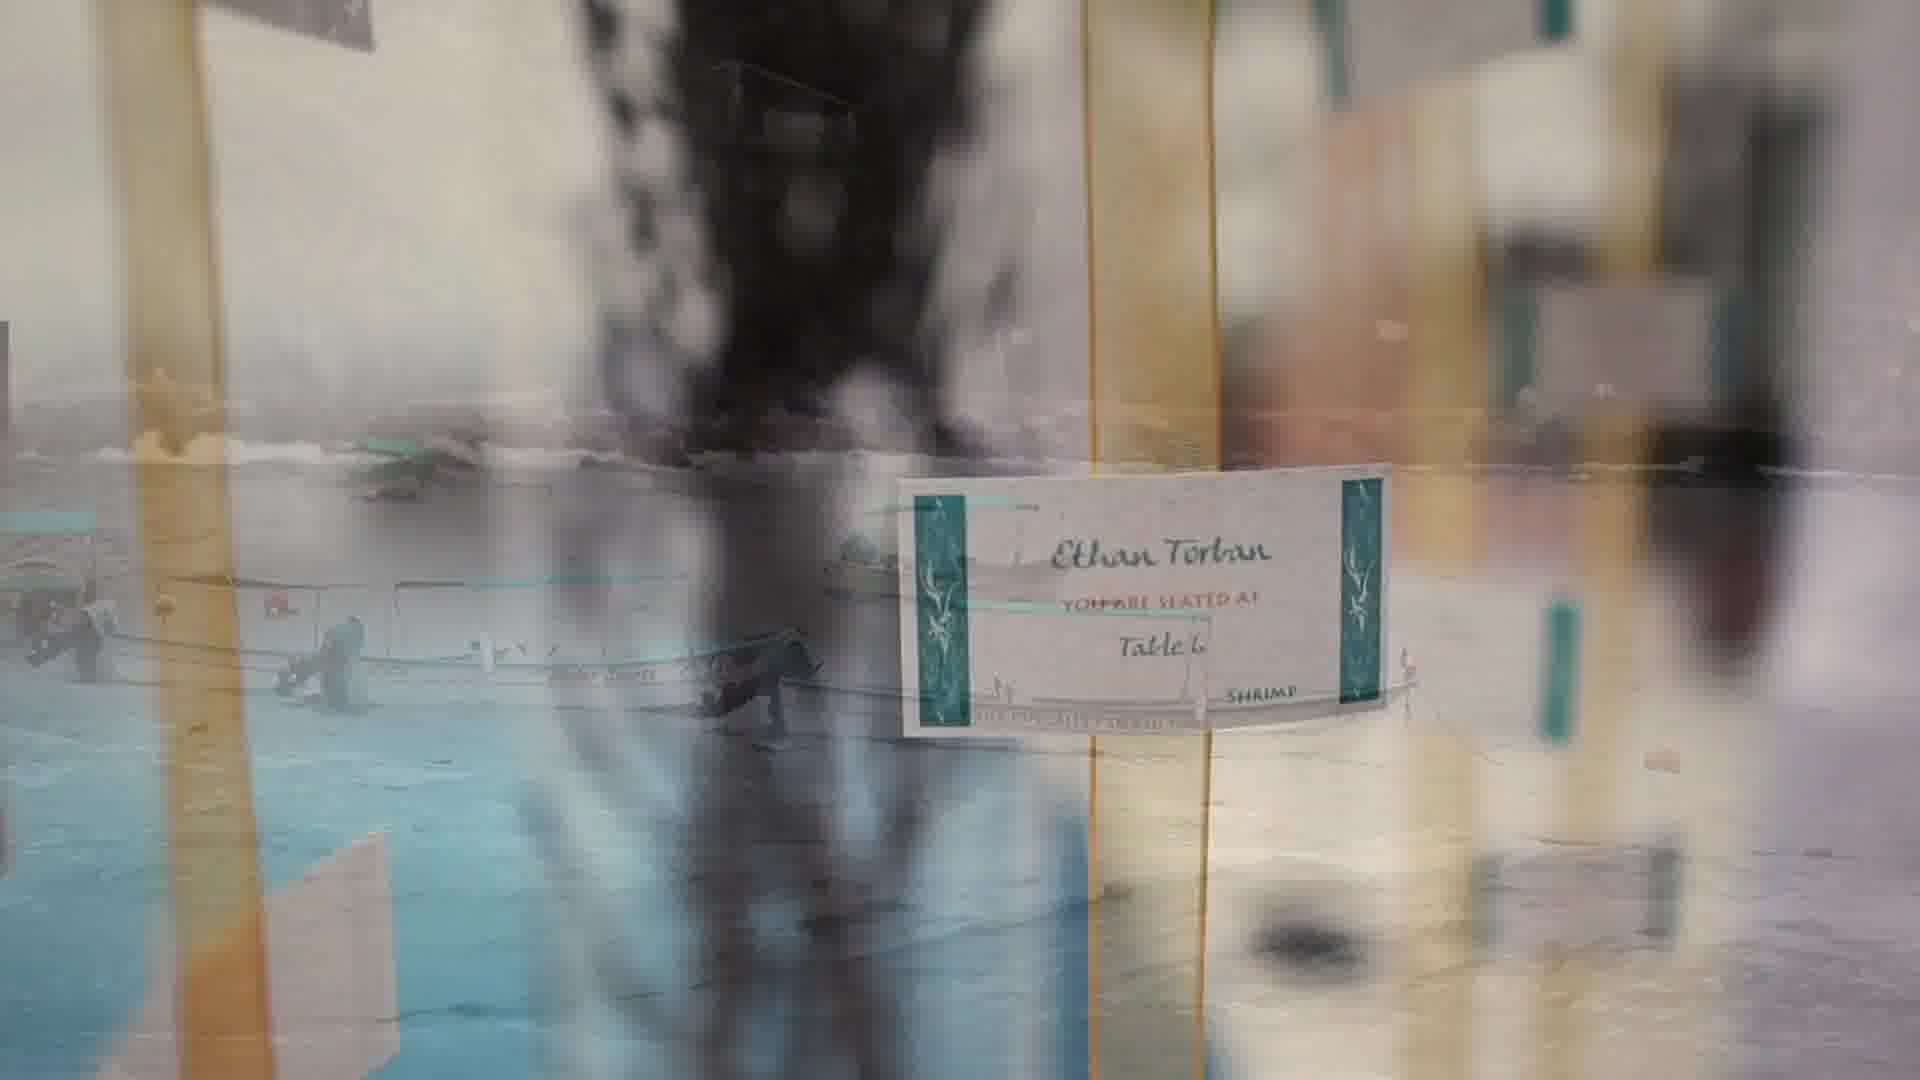 Ethan Torban
YOU ARE SEATED AT
Table 6
SHRIMP